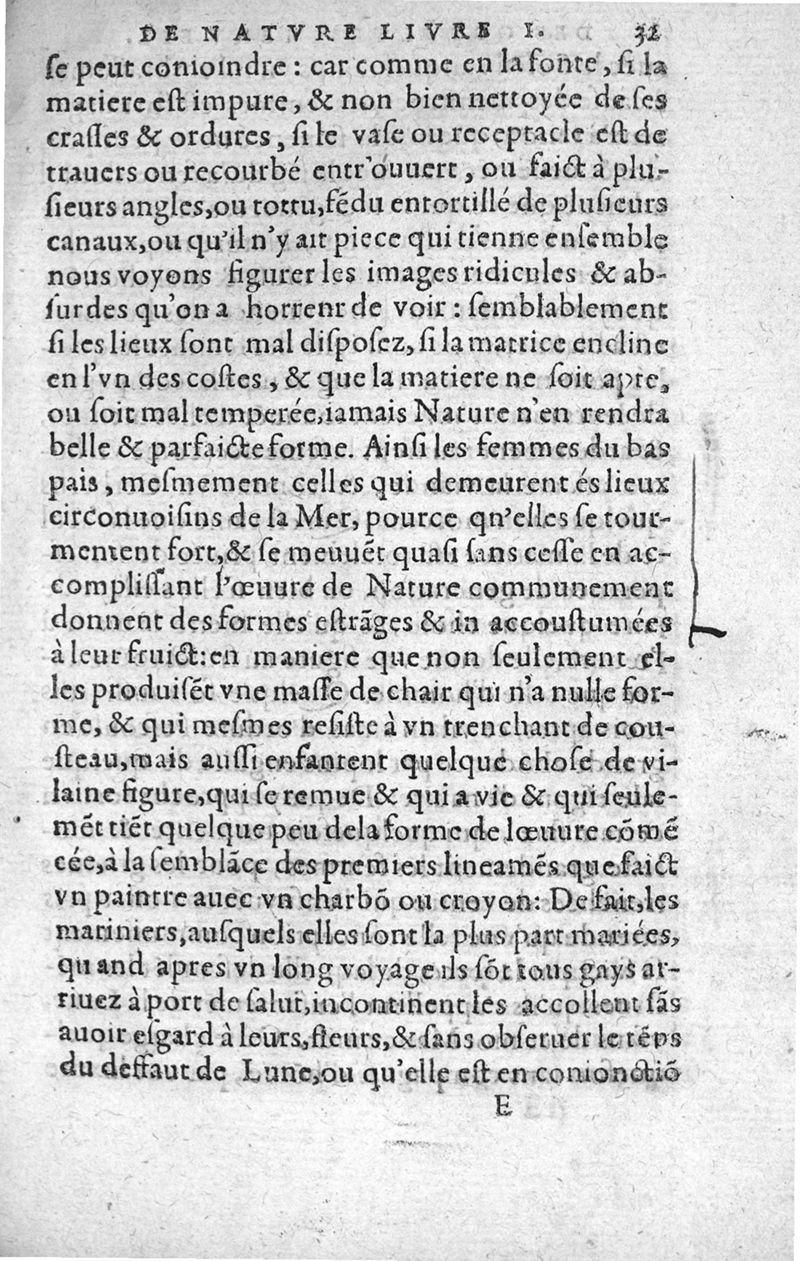 DE NATVRE LIVRE I. 32
ſe peut conioindre : car comme en la fonte, ſi la
matiere eſt impure, & non bien nettoyée de ſes
craſſes & ordures, ſi le vaſe ou receptacle eſt de
trauers ou recourbé entr'ouuert, ou faict à plu-
ſieurs angles,ou tortu,fédu entortillé de pluſieurs
canaux,ou qu'il n'y ait piece qui tienne enſemble
nous voyons figurer les images ridicules & ab-
ſurdes qu'on a horrenr de voir : ſemblablement
ſi les lieux ſont mal diſpoſez, ſi la matrice encline
en l'vn des coſtes, & que la matiere ne ſoit apte,
ou ſoit mal temperée,iamais Nature n'en rendra
belle & parfaicte forme. Ainſi les femmes du bas
pais, meſmement celles qui demeurent és lieux
circonuoiſins de la Mer, pource qn'elles ſe tour-
mentent fort,& ſe meuuēt quaſi ſans ceſſe en ac-
compliſſant l'œuure de Nature communement
donnent des formes eſtrāges & in accouſtumées
à leur fruict:en maniere que non ſeulement el-
les produiſēt vne maſſe de chair qui n'a nulle for-
me, & qui meſmes reſiſte à vn trenchant de cou-
ſteau,mais auſſi enfantent quelque choſe de vi-
laine figure,qui ſe remue & qui a vie & qui ſeule-
mēt tiēt quelque peu dela forme de lœuure cōmē
cée,à la ſemblāce des premiers lineamēs que faict
vn paintre auec vn charbō ou croyon: De fait,les
mariniers,auſquels elles ſont la plus part mariées,
quand apres vn long voyage ils ſōt tous gays ar-
riuez à port de ſalut,incontinent les accollent ſās
auoir eſgard à leurs,fleurs,& ſans obſeruer le tēps
du deffaut de Lune,ou qu'elle eſt en conionctiō
E